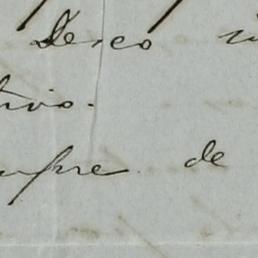 Deseo
tivo.
mpre de